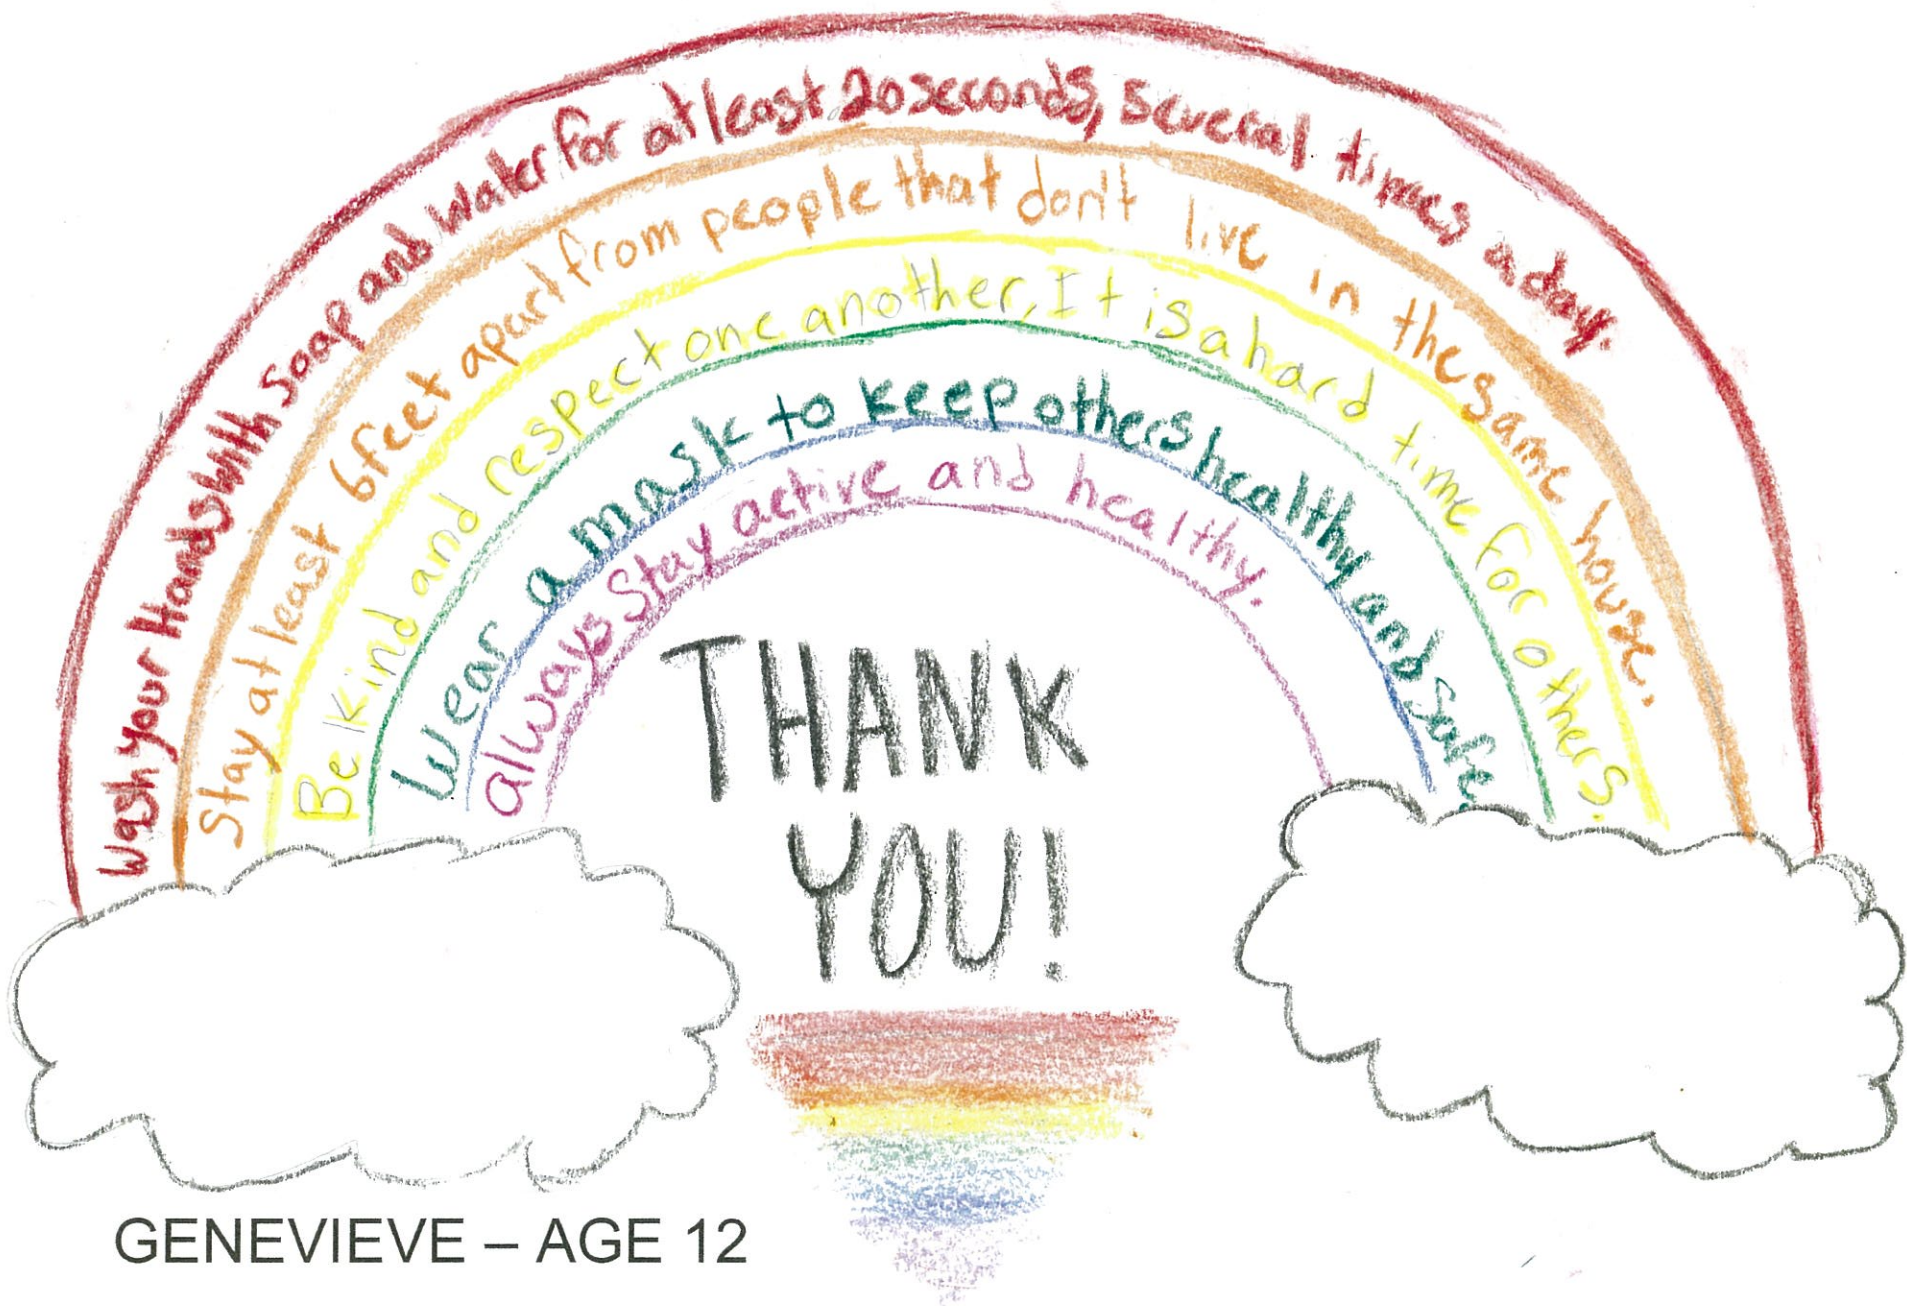 Wash your Hands With Soap and Water for at least 20 seconds, several times a day.
Stay at least 6 feet apart from people that don't live in the same house.
Be kind and respect one another, It is a hard time for others.
Wear a mask to keep others healthy and safe.
always Stay active and healthy.
THANK
YOU!
GENEVIEVE – AGE 12